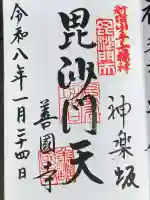 新宿山ノ手七福神
神楽坂
毘沙門天
善國寺
令和八年一月二十四日